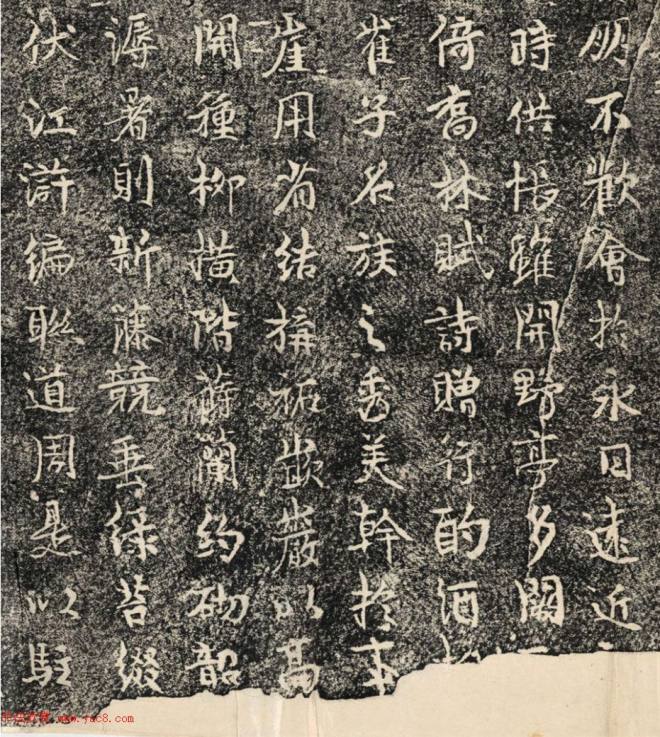 朋不歡會於永日速近
時供悵雖開野亭多闕
倚喬林賦詩贈行酌酒
雀子名族之秀美幹於事
崖用省結構祐嵌巖以高
開種柳橫階蒔蘭約砌韶
溽暑則新藤競垂綠苔綴
伏江滸編聯道周是以駐
www.yac8.com